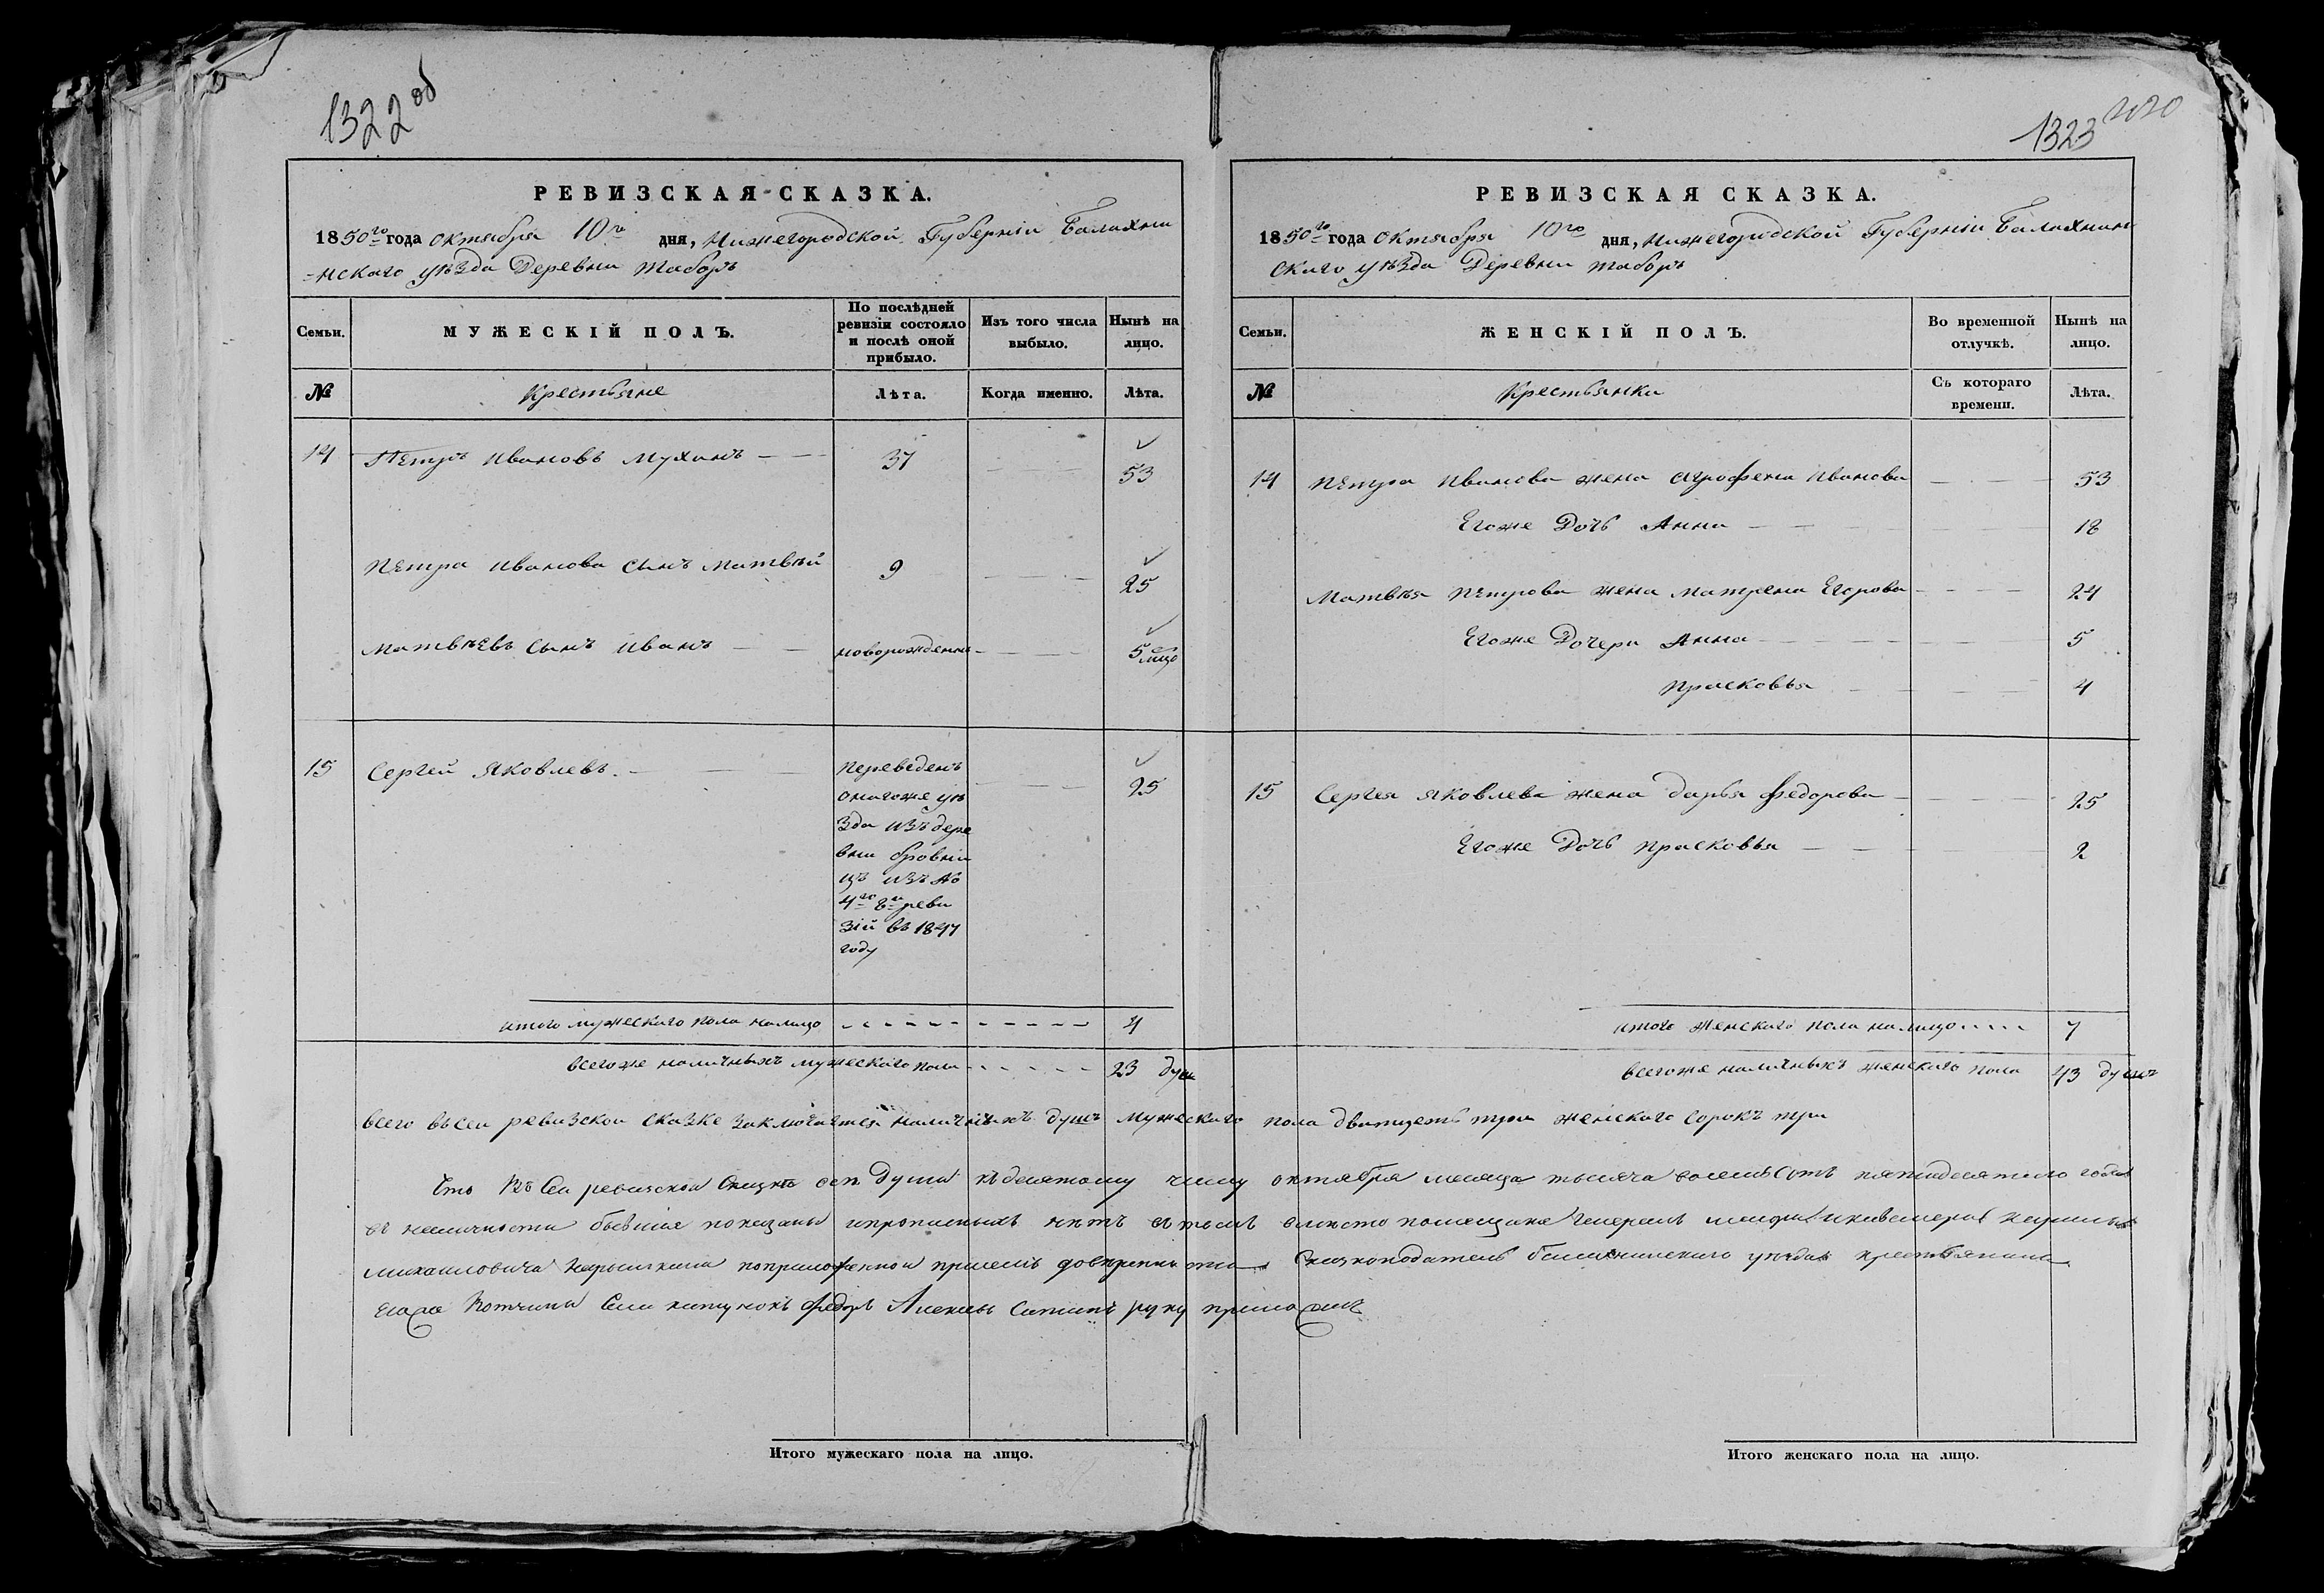 1322 об
РЕВИЗСКАЯ СКАЗКА.
1850го года октября 10го дня, Нижегородской Губернiи Балахни
=нскаго уѣзда Деревни Таборъ
Семьи.
МУЖЕСКIЙ ПОЛЪ.
По послѣдней ревизiи состояло и послѣ оной прибыло.
Изъ того числа выбыло.
Нынѣ на лицо.
№
Крестьяне
Лѣта.
Когда именно.
Лѣта.
14 Петръ Ивановъ Мухинъ 37 53
Петра Иванова сынъ Матвѣй 9 25
Матвѣевъ сынъ Иванъ новорожденнъ 5 лицо
15 Сергей Яковлевъ. Переведенъ 25
онагоже уѣ
зда изъ дере
вни бровни
цъ изъ №
4го 8й реви
зiй въ 1847
году
итого мужескаго пола налицо 4
всегоже наличныхъ мужескаго пола 23 душ
1323
РЕВИЗСКАЯ СКАЗКА.
1850го года Октября 10го дня, Нижегородской Губернiи Балахнин
скаго уѣзда Деревни Таборъ
Семьи.
ЖЕНСКIЙ ПОЛЪ.
Во временной отлучкѣ.
Нынѣ на лицо.
№
Крестьянки
Съ котораго времени.
Лѣта.
14 Петра Иванова жена Агрофена Иванова 53
Егоже Дочь Анна 18
Матвѣя Петрова жена Матрена Егорова 24
Егоже Дочери Анна 5
Прасковья 4
15 Сергея Яковлева жена Дарья Федорова 25
Егоже Дочь Прасковья 2
итого женскаго пола налицо 7
всегоже наличныхъ женскаго пола 43 душъ
всего въ сеи ревизскои сказке заключается наличныхъ душъ мужескаго пола дватцеть три женскаго сорокъ три
Что въ сеи ревизскои Сказкѣ все Души къ десятому числу октября месяца тысяча восемьсотъ пятидесятаго года
въ наличности бывшiе показаны и прописныхъ нѣтъ въ томъ вместо помещика Генералъ
Михаиловича доверенности Сказкоподатель балахнинскаго уезда крестьянинъ
Егоже Вотчины Села Федоръ Алексеевъ руку приложилъ
Итого мужескаго пола на лицо.
Итого женскаго пола на лицо.